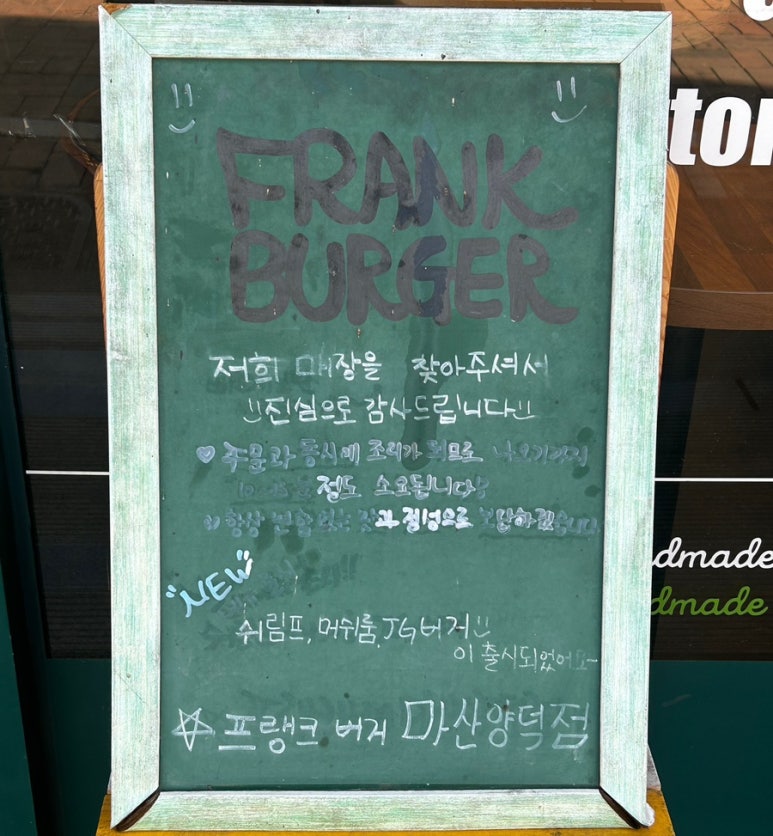 FRANK
BURGER
저희 매장을 찾아주셔서
진심으로 감사드립니다
♡ 주문과 동시에 조리가 되므로 나오기까지
정도 소요됩니다
항상 변함 없는 맛과 정성으로 보답하겠습니다
"NEW"
쉬림프, 머쉬룸, JG버거
이 출시되었어요~
☆ 프랭크 버거 마산양덕점
tor
dmade
dmade